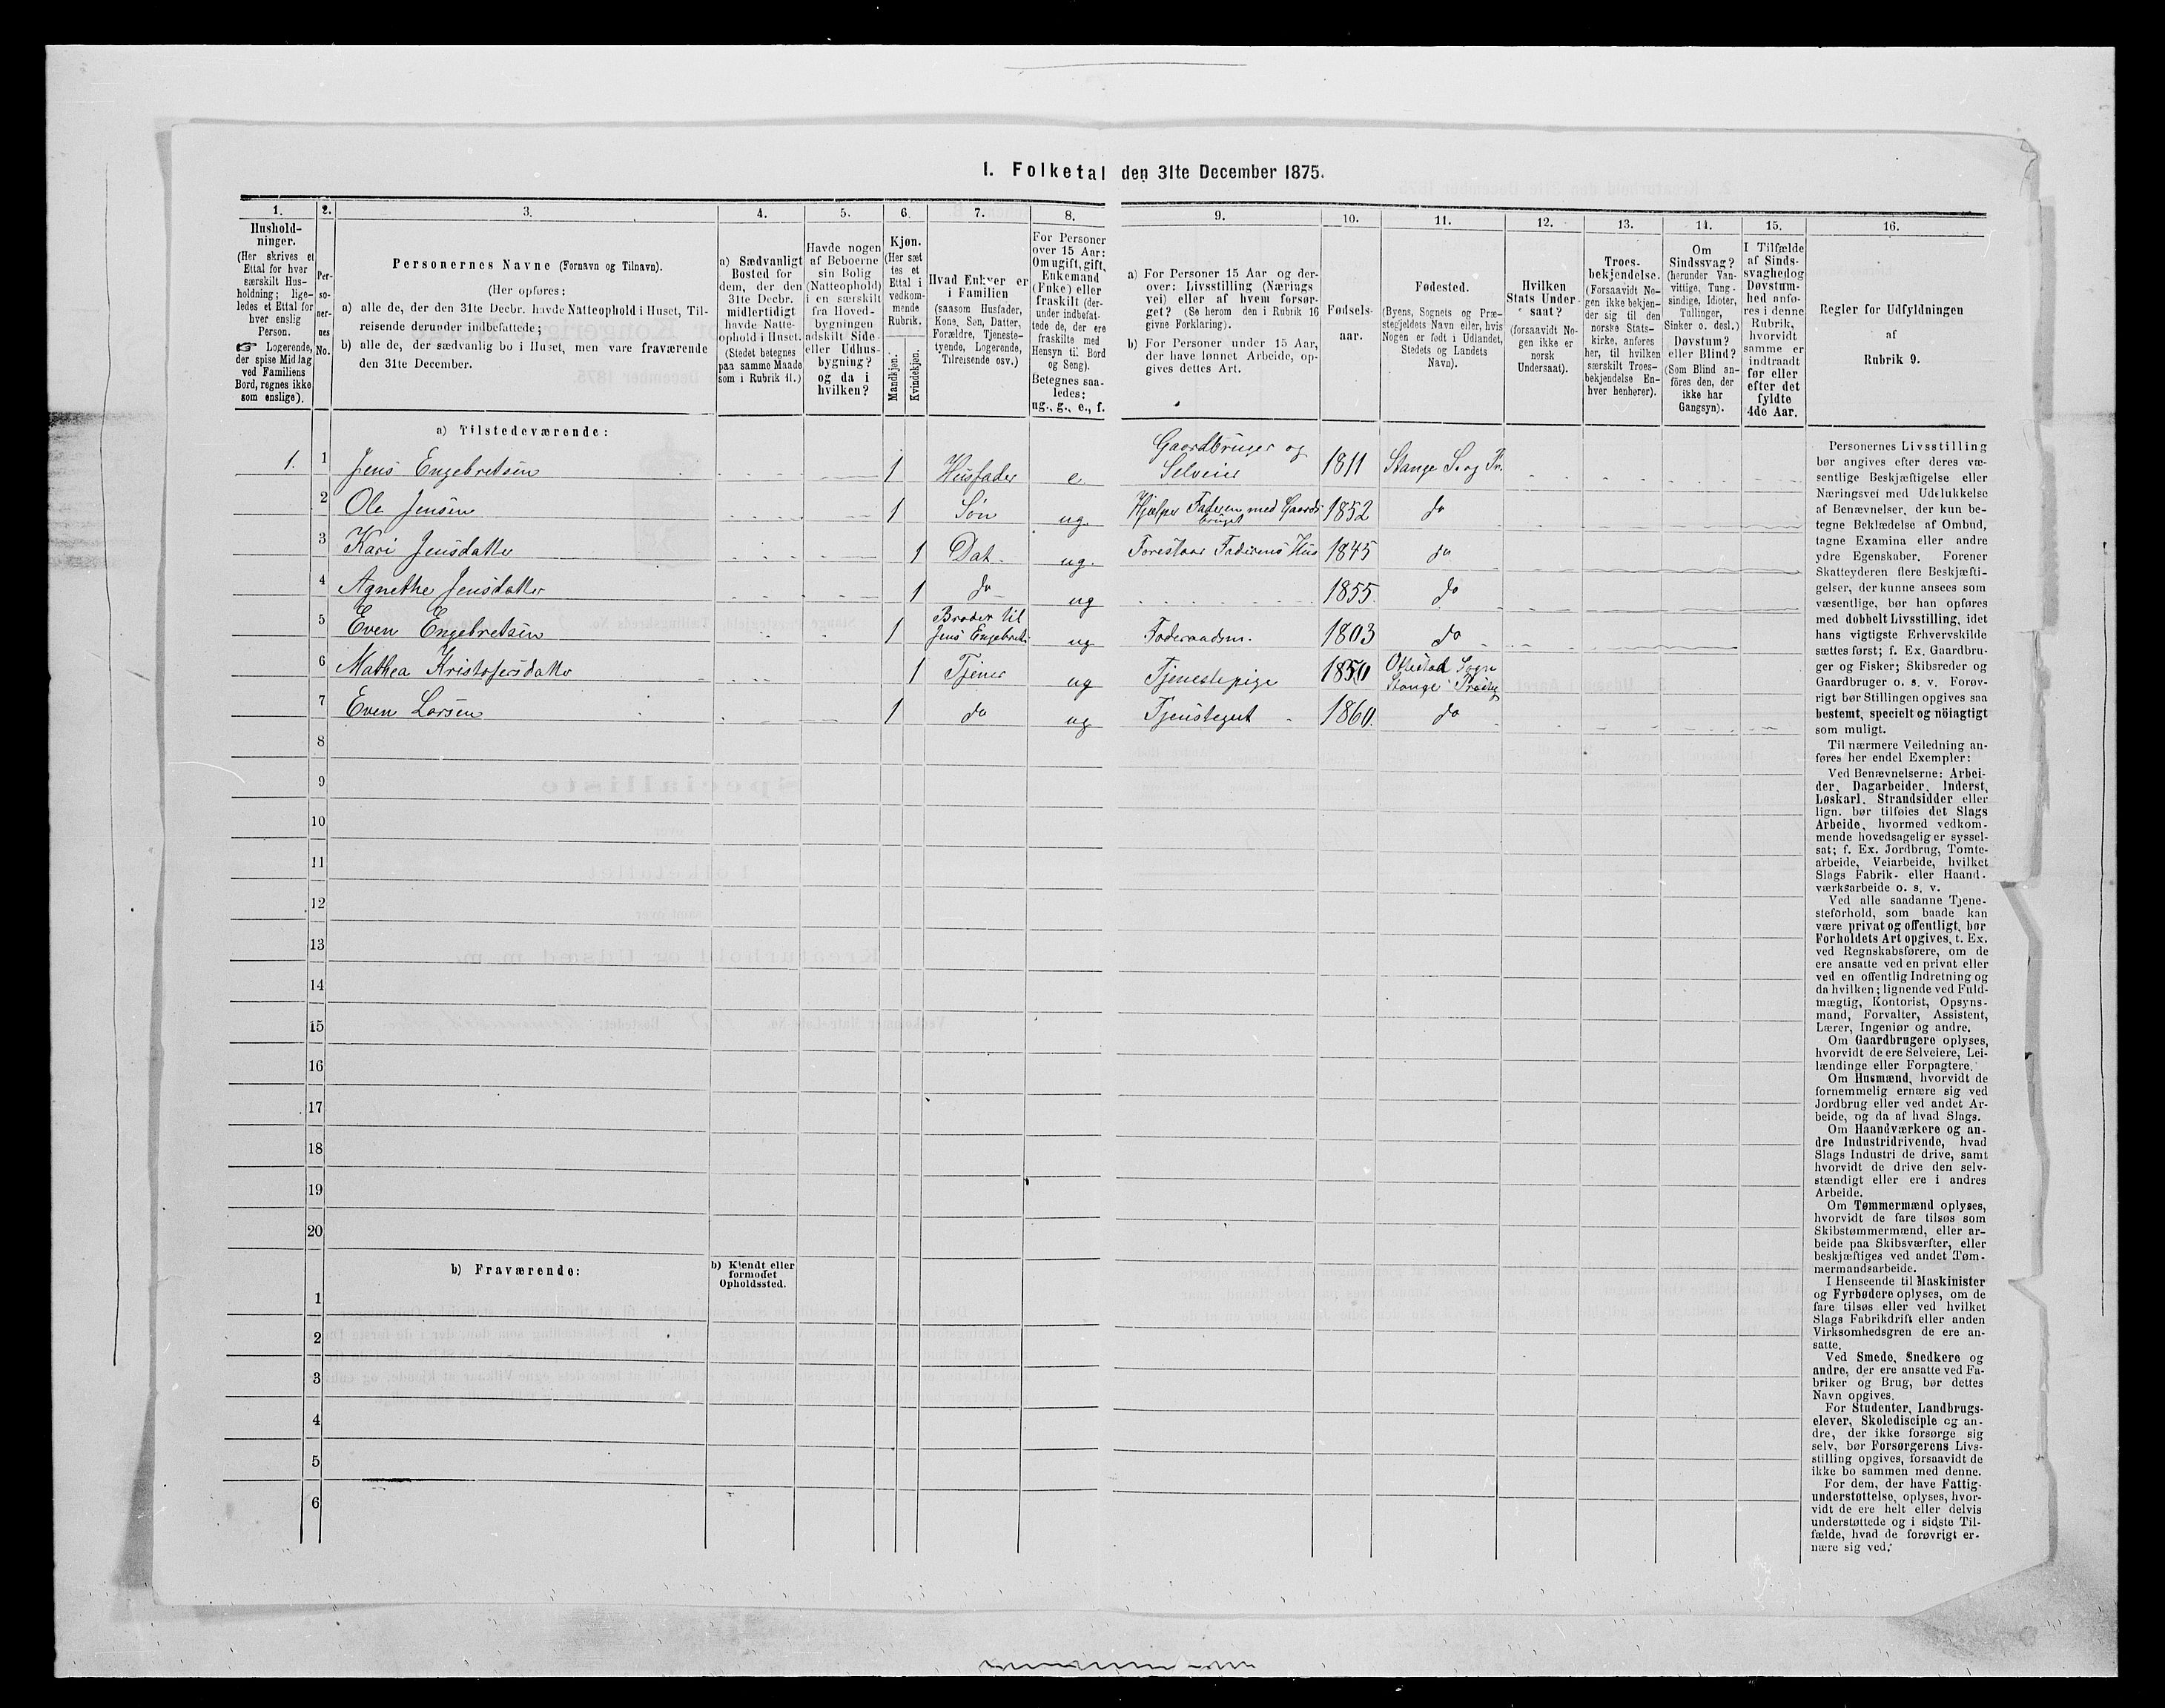 I. Folketal den 31te December 1875.
1.
2.
3.
4.
5.
6.
7.
8.
9.
10.
11.
12.
13.
14.
15.
16.
Hushold-
ninger.
(Her skrives et
Ettal for hver
særskilt Hus-
holdning; lige-
ledes et Ettal for
hver enslig
Person.
☞ Logerende,
der spise Middag
ved Familiens
Bord, regnes ikke
som enslige).
Per-
so-
ner-
nes
No.
Personernes Navne (Fornavn og Tilnavn).
(Her opføres:
a) alle de, der den 31te Decbr. havde Natteophold i Huset, Til-
reisende derunder indbefattede;
b) alle de, der sædvanlig bo i Huset, men vare fraværende
den 31te December.
a) Sædvanligt
Bosted for
dem, der den
31te Decbr.
midlertidigt
havde Natte-
ophold i Huset.
(Stedet betegnes
paa samme Maade
som i Rubrik 11.)
Havde nogen
af Beboerne
sin Bolig
(Natteophold)
i en særskilt
fra Hoved-
bygningen
adskilt Side-
eller Udhus-
bygning?
og da i
hvilken?
Kjøn.
(Her sæt
tes et
Ettal i
vedkom-
mende
Rubrik.
Mandkjøn.
Kvindekjøn.
Hvad Enhver er
i Familien
(saasom Husfader,
Kone, Søn, Datter,
Forældre, Tjeneste-
tyende, Logerende,
Tilreisende osv.)
For Personer
over 15 Aar:
Om ugift, gift,
Enkemand
(Enke) eller
fraskilt (der-
under indbefat-
tede de, der ere
fraskilte med
Hensyn til Bord
og Seng).
Betegnes saa-
ledes:
ug., g., e., f.
a) For Personer 15 Aar og der-
over: Livsstilling (Nærings
vei) eller af hvem forsør-
get? (Se herom den i Rubrik 16
givne Forklaring).
b) For Personer under 15 Aar,
der have lønnet Arbeide, op-
gives dettes Art.
Fødsels-
aar.
Fødested.
(Byens, Sognets og Præ-
stegjeldets Navn eller, hvis
Nogen er født i Udlandet,
Stedets og Landets
Navn).
Hvilken
Stats Under-
saat?
(forsaavidt No-
gen ikke er
norsk
Undersaat).
Troes-
bekjendelse.
(Forsaavidt No-
gen ikke bekjen-
der sig til den
norske Stats-
kirke, anføres
her, til hvilken
særskilt Troes-
bekjendelse En-
hver henhører).
Om
Sindssvag?
(herunder Van-
vittige, Tung-
sindige, Idioter,
Tullinger,
Sinker o. desl.)
Døvstum?
eller Blind?
(Som Blind an-
føres den, der
ikke har
Gangsyn).
I Tilfælde
af Sinds-
svaghed og
Døvstum-
hed anfø-
res i denne
Rubrik,
hvorvidt
samme er
indtraadt
før eller
efter det
fyldte
4de Aar.
Regler for Udfyldningen
af
Rubrik 9.
a) Tilstedeværende:
1. 1 Jens Engebretsen 1 Husfader e Gaardbruger og Selveier 1811 Stange S. og Pr.
2 Ole Jensen 1 Søn ug. Hjælper Faderen med Gaards bruget 1852 do
3 Kari Jensdatter 1 Dat. ug. Forestaar Faderens Hus 1845 do
4 Agnethe Jensdatter 1 do ug 1855. do
5 Even Engebretsen 1 Broder til Jens Engebrets. ug Føderaadsm. 1803 do
6 Mathea Kristofersdatter 1 Tjener ug Tjenestepige 1850 Ottestad Sogn Stange Præsteg
7 Even Larsen 1 do ug Tjenstegut 1860. do
8
9
10
11
12
13
14
15
16
17
18
19
20
b) Fraværende:
b) Kjendt eller
formodet
Opholdssted.
1
2
3
4
5
6
Personernes Livsstilling
bør angives efter deres væ-
sentlige Beskjæftigelse eller
Næringsvei med Udelukkelse
af Benævnelser, der kun be-
tegne Beklædelse af Ombud,
tagne Examina eller andre
ydre Egenskaber. Forener
Skatteyderen flere Beskjæfti-
gelser, der kunne ansees som
væsentlige, bør han opføres
med dobbelt Livsstilling, idet
hans vigtigste Erhvervskilde
sættes først; f. Ex. Gaardbru-
ger og Fisker; Skibsreder og
Gaardbruger o. s. v. Forøv-
rigt bør Stillingen opgives saa
bestemt, specielt og nöiagtigt
som muligt.
Til nærmere Veiledning an-
føres her endel Exempler:
Ved Benævnelserne: Arbei-
der, Dagarbeider, Inderst,
Løskarl, Strandsidder eller
lign. bør tilføies det Slags
Arbeide, hvormed vedkom-
mende hovedsagelig er syssel-
sat; f. Ex. Jordbrug, Tomte-
arbeide, Veiarbeide, hvilket
Slags Fabrik- eller Haand-
værksarbeide o. s. v.
Ved alle saadanne Tjene-
steforhold, som baade kan
være privat og offentligt, bør
Forholdets Art opgives, t. Ex.
ved Regnskabsførere, om de
ere ansatte ved en privat eller
ved en offentlig Indretning og
da hvilken; lignende ved Fuld-
mægtig, Kontorist, Opsyns-
mand, Forvalter, Assistent,
Lærer, Ingeniør og andre.
Om Gaardbrugere oplyses,
hvorvidt de ere Selveiere, Lei-
lændinge eller Forpagtere.
Om Husmænd, hvorvidt de
fornemmelig ernære sig ved
Jordbrug eller ved andet Ar-
beide, og da af hvad Slags.
Om Haandværkere og an-
dre Industridrivende, hvad
Slags Industri de drive, samt
hvorvidt de drive den selv-
stændigt eller ere i andres
Arbeide.
Om Tømmermænd oplyses,
hvorvidt de fare tilsøs som
Skibstømmermænd, eller ar-
beide paa Skibsværfter, eller
beskjæftiges ved andet Tøm-
mermandsarbeide.
I Henseende til Maskinister
og Fyrbødere oplyses, om de
fare tilsøs eller ved hvilket
Slags Fabrikdrift eller anden
Virksomhedsgren de ere an-
satte.
Ved Smede, Snedkere og
andre, der ere ansatte ved Fa-
briker og Brug, bør dettes
Navn opgives.
For Studenter, Landbrugs-
elever, Skoledisciple og an-
dre, der ikke forsørge sig
selv, bør Forsørgerens Livs-
stilling opgives, forsaavidt de
ikke bo sammen med denne.
For dem, der have Fattig-
understøttelse, oplyses, hvor-
vidt de ere helt eller delvis
understøttede og i sidste Til-
fælde, hvad de forøvrigt er-
nære sig ved.